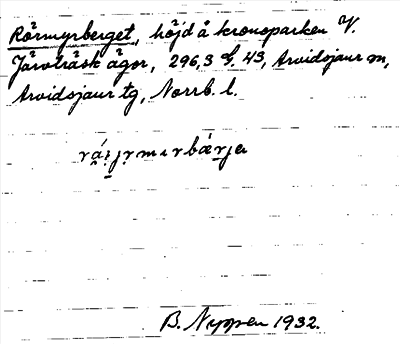 Rörmyrberget, höjd å kronoparken V.
Järvträsk ägor, 296,3 f. 43, Arvidsjaur sn,
Arvidsjaur tg, Norrb. l.
B. Nyppen 1932.